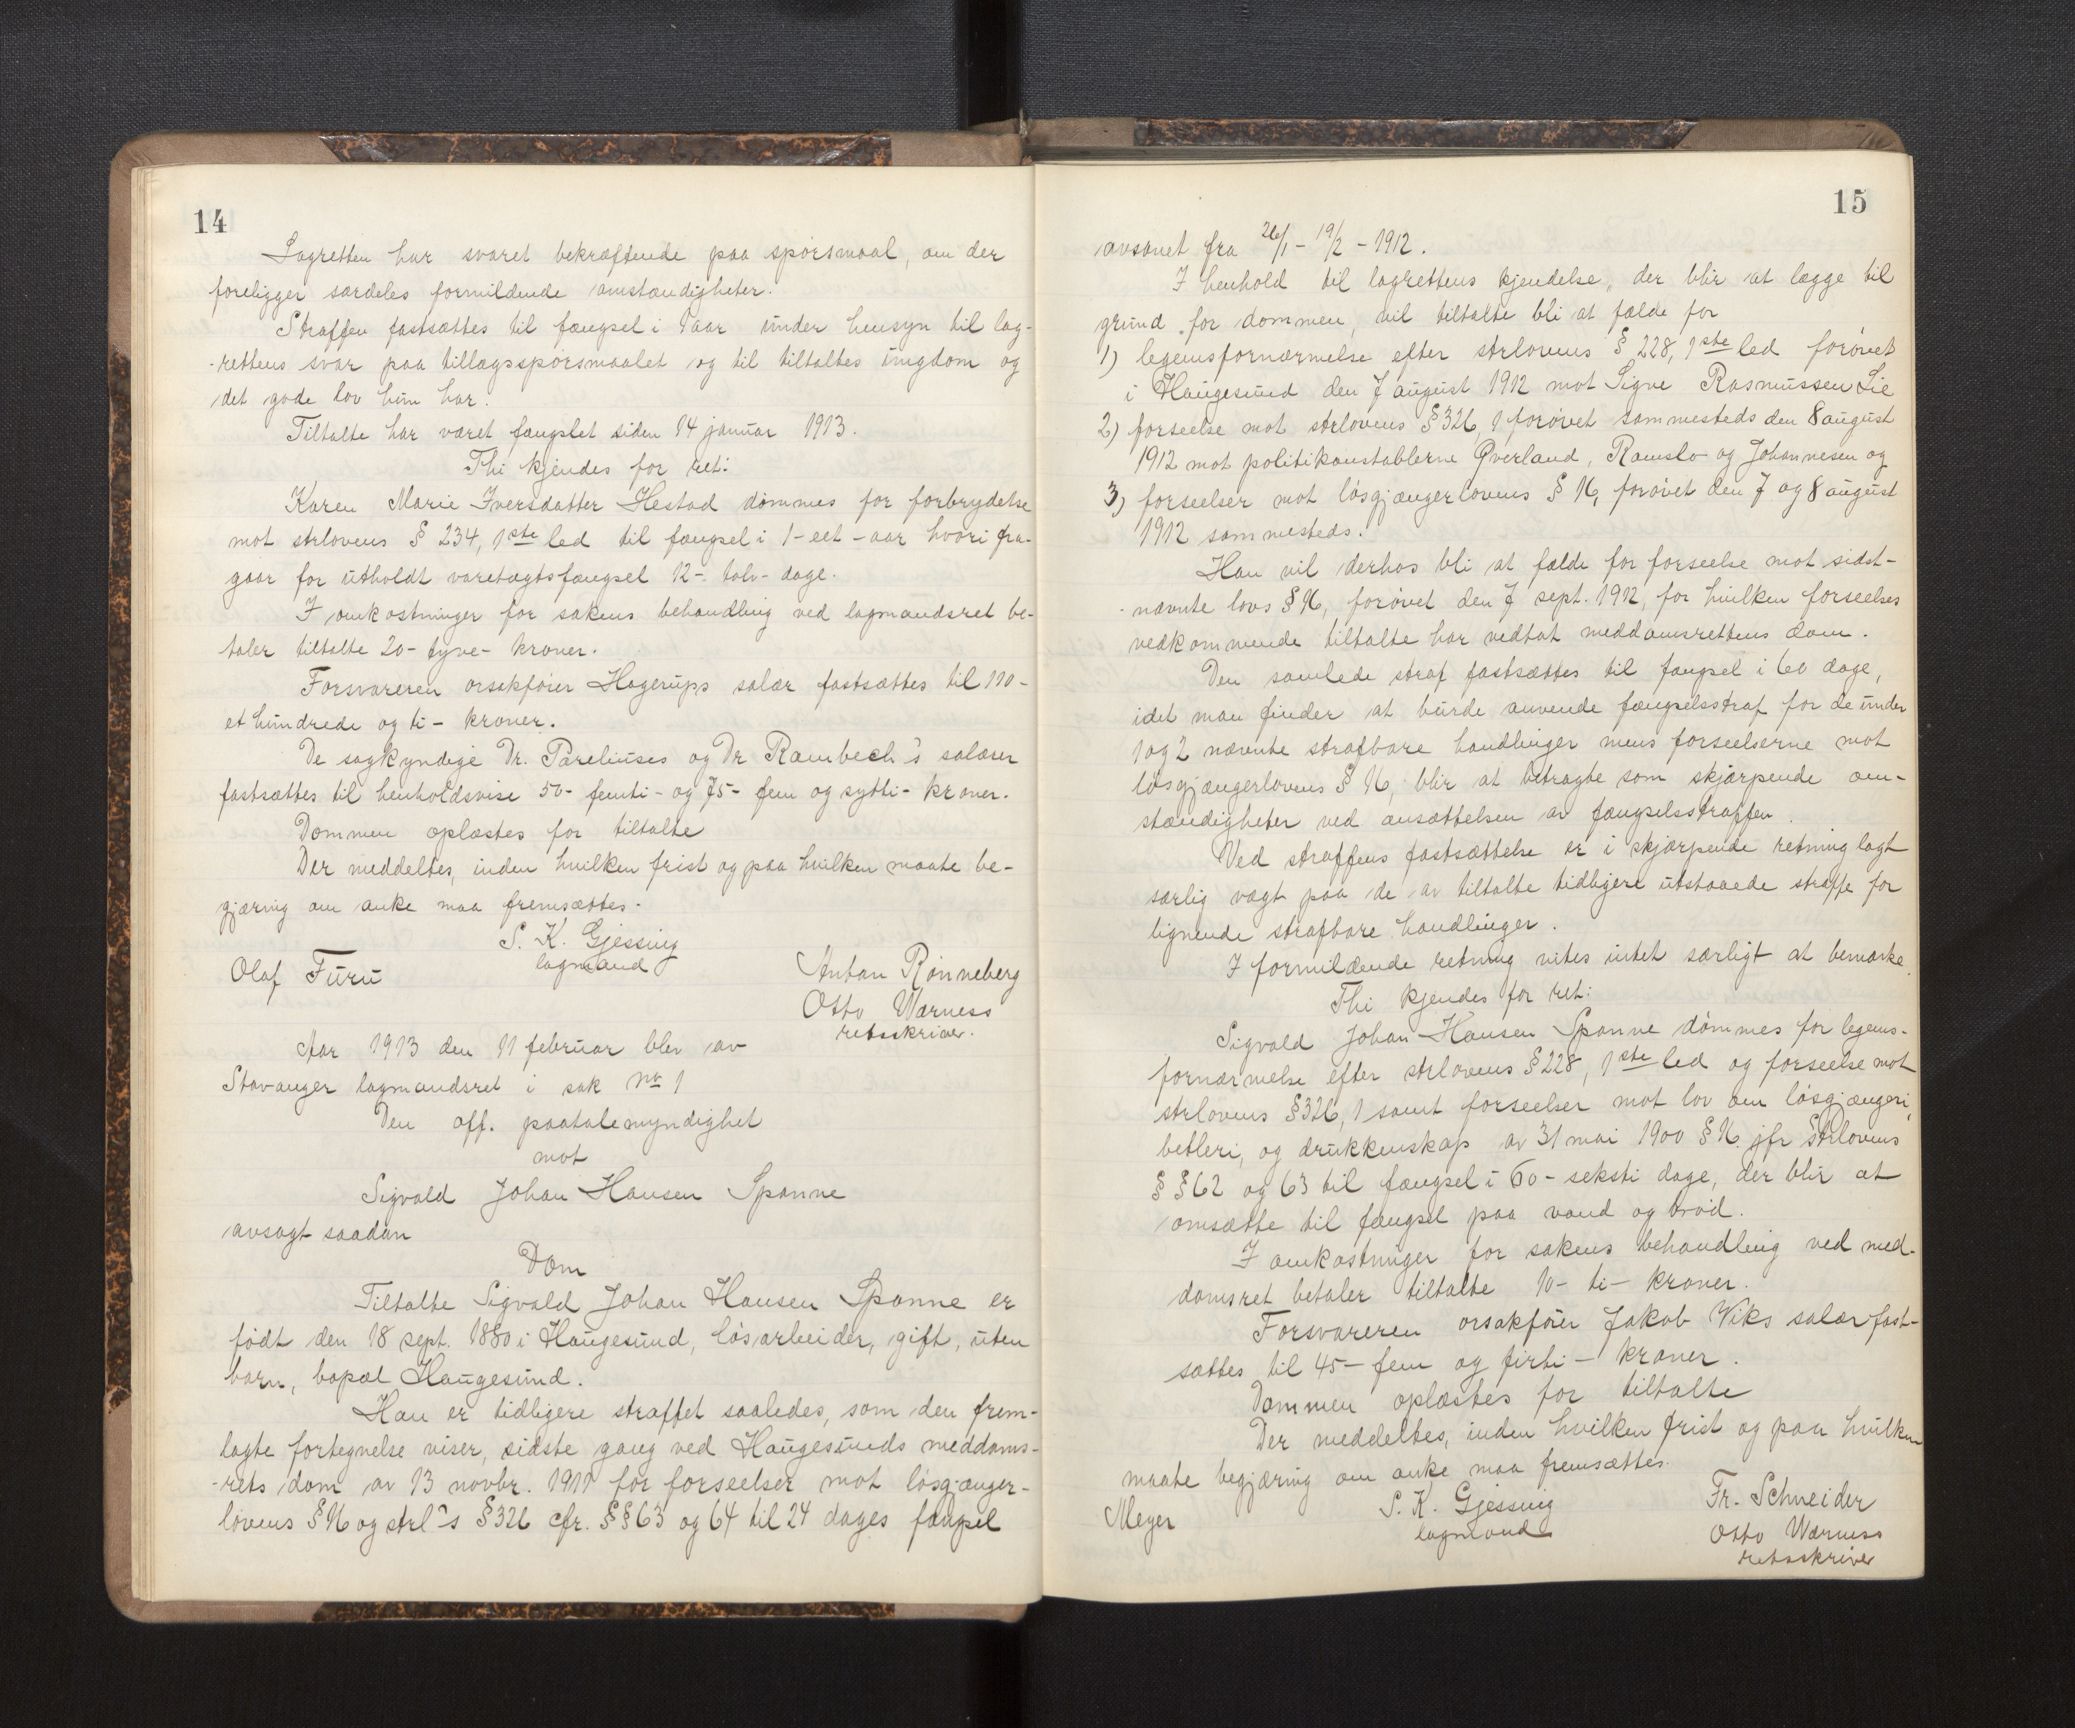 14
Lagretten har svaret bekræftende paa spørsmaal, om der
foreligger særdeles formildende omstændigheter.
Straffen fastsættes til fængsel i 1 aar under hensyn til lag-
-rettens svar paa tillægsspørsmaalet og til tiltaltes ungdom og
det gode lov hun har.
Tiltalte har været fængslet siden 14 januar 1913.
Thi kjendes for ret:
Karen Marie Iversdatter Hestad dømmes for forbrydelse
mot strlovens § 234, 1ste led til fængsel i 1 - eet - aar hvori fra-
gaar for utholdt varetægtsfængsel 12 - tolv - dage.
I omkostninger for sakens behandling ved lagmandsret be-
taler tiltalte 20 - tyve - kroner.
Forsvareren orsakfører Hagerups salær fastsættes til 110 -
et hundrede og ti - kroner.
De sagkyndige Dr. Pareliuses og Dr Rambech's salærer
fastsættes til henholdsvise 50 - femti - og 75 - fem og sytti - kroner.
Dommen oplæstes for tiltalte
Der meddeltes, inden hvilken frist og paa hvilken maate be-
gjæring om anke maa fremsættes.
S. K. Gjessing
lagmand
Olaf Furu
Anton Rønneberg
Otto Warness
retsskriver.
Aar 1913 den 11 februar blev av
Stavanger lagmandsret i sak No 1
Den off. paatalemyndighet
mot
Sigvald Johan Hansen Spanne
avsagt saadan
Dom
Tiltalte Sigvald Johan Hansen Spanne er
født den 18 sept. 1880 i Haugesund, løsarbeider, gift, uten
barn, bopæl Haugesund.
Han er tidligere straffet saaledes, som den frem-
lagte fortegnelse viser, sidste gang ved Haugesunds meddoms-
-rets dom av 13 novbr. 1911 for forseelser mot løsgjænger-
lovens § 16 og strl's § 326 cfr. §§ 63 og 64 til 24 dages fængsel
15
avsonet fra 26/1 - 19/2 - 1912.
I henhold til lagrettens kjendelse, der blir at lægge til
grund for dommen, vil tiltalte bli at fælde for
1) legemsfornærmelse efter strlovens § 228, 1ste led forøvet
i Haugesund den 7 august 1912 mot Sigve Rasmussen Lie
2) forseelse mot strlovens § 326, 1 forøvet sammesteds den 8 august
1912 mot politikonstablerne Qverland, Ramslo og Johannesen og
3) forseelser mot løsgjængerlovens § 16, forøvet den 7 og 8 august
1912 sammesteds.
Han vil derhos bli at fælde for forseelse mot sidst-
-nævnte lovs § 16, forøvet den 7 sept. 1912, for hvilken forseelses
vedkommende tiltalte har vedtat meddomsrettens dom.
Den samlede straf fastsættes til fængsel i 60 dage,
idet man finder at burde anvende fængselsstraf for de under
1 og 2 nævnte strafbare handlinger mens forseelserne mot
løsgjængerlovens § 16, blir at betragte som skjærpende om-
stændigheter ved ansættelsen av fængselsstraffen.
Ved straffens fastsættelse er i skjærpende retning lagt
særlig vægt paa de av tiltalte tidligere utstaaede straffe for
lignende strafbare handlinger.
I formildende retning vites intet særligt at bemærke.
Thi kjendes for ret:
Sigvald Johan Hansen Spanne dømmes for legems-
fornærmelse efter strlovens § 228, 1ste led og forseelse mot
strlovens § 326, 1 samt forseelser mot lov om løsgjængeri,
betleri, og drukkenskap av 31 mai 1900 § 16. jfr Strlovens
§ § 62 og 63 til fængsel i 60 - seksti dage, der blir at
omsætte til fængsel paa vand og brød.
I omkostninger for sakens behandling ved med-
domsret betaler tiltalte 10 - ti - kroner.
Forsvareren orsakfører Jakob Viks salær fast-
sættes til 45 - fem og firti - kroner.
Dommen oplæstes for tiltalte
Der meddeltes, inden hvilken frist og paa hvilken
maate begjæring om anke maa fremsættes.
Meyer
S. K. Gjessing
lagmand
Fr. Schneider
Otto Warness
retsskriver